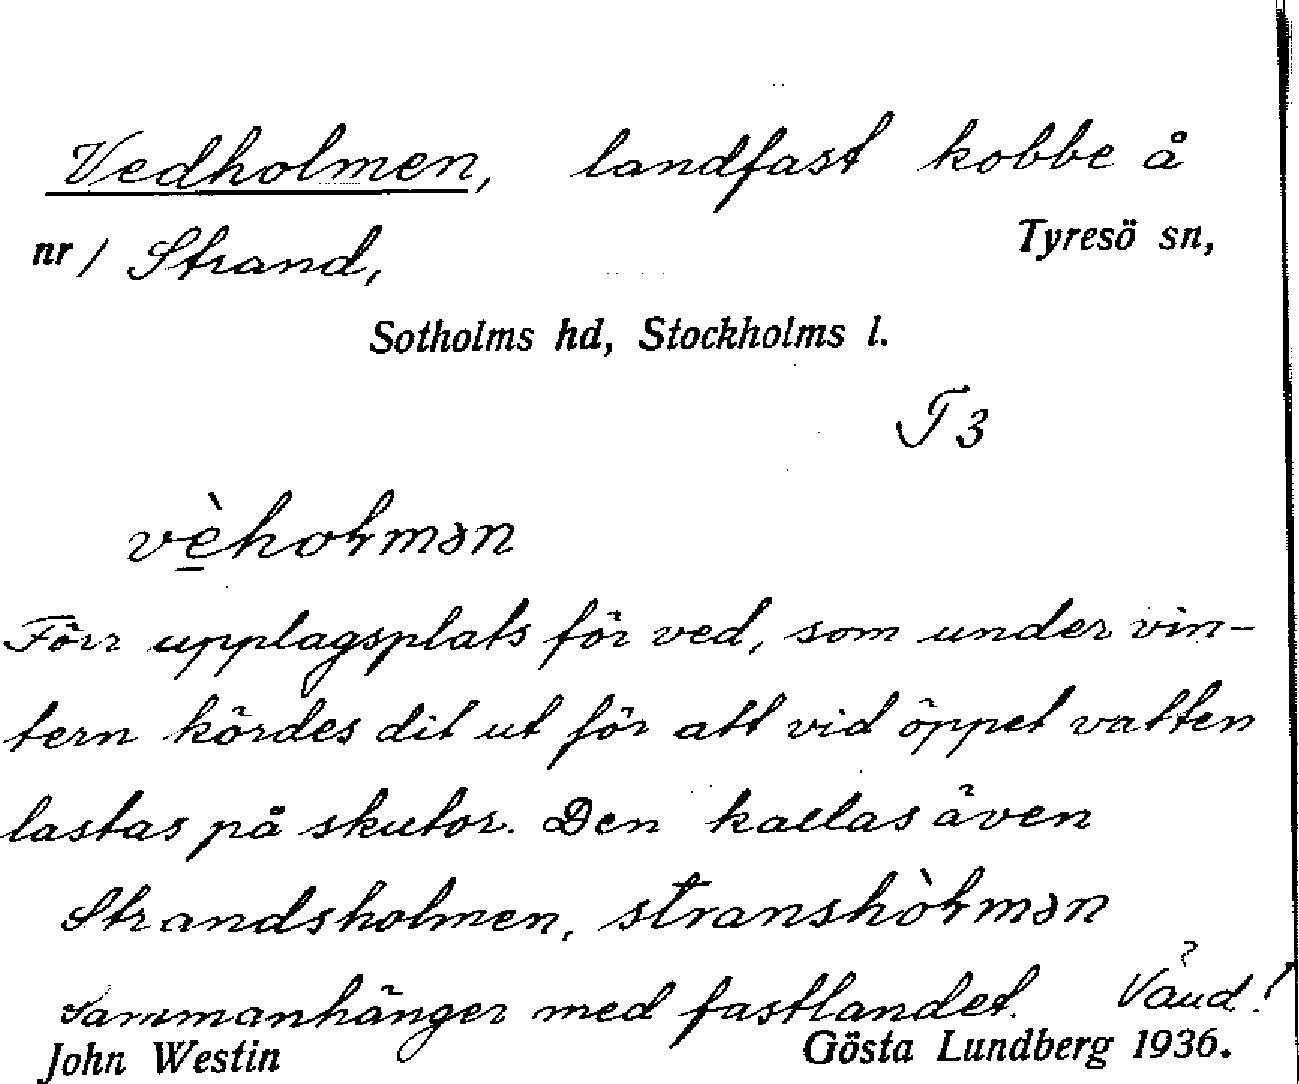 Vedholmen, landfast kobbe å
nr 1 Strand, Tyresö sn,
Sotholms hd, Stockholms l.
T3
vèholmən
Förr upplagsplats för ved, som under vin-
tern kördes dit ut för att vid öppet vatten
lastas på skutor. Den kallas även
Strandsholmen, stranshòlmən
Sammanhänger med fastlandet. Vänd!
John Westin Gösta Lundberg 1936.